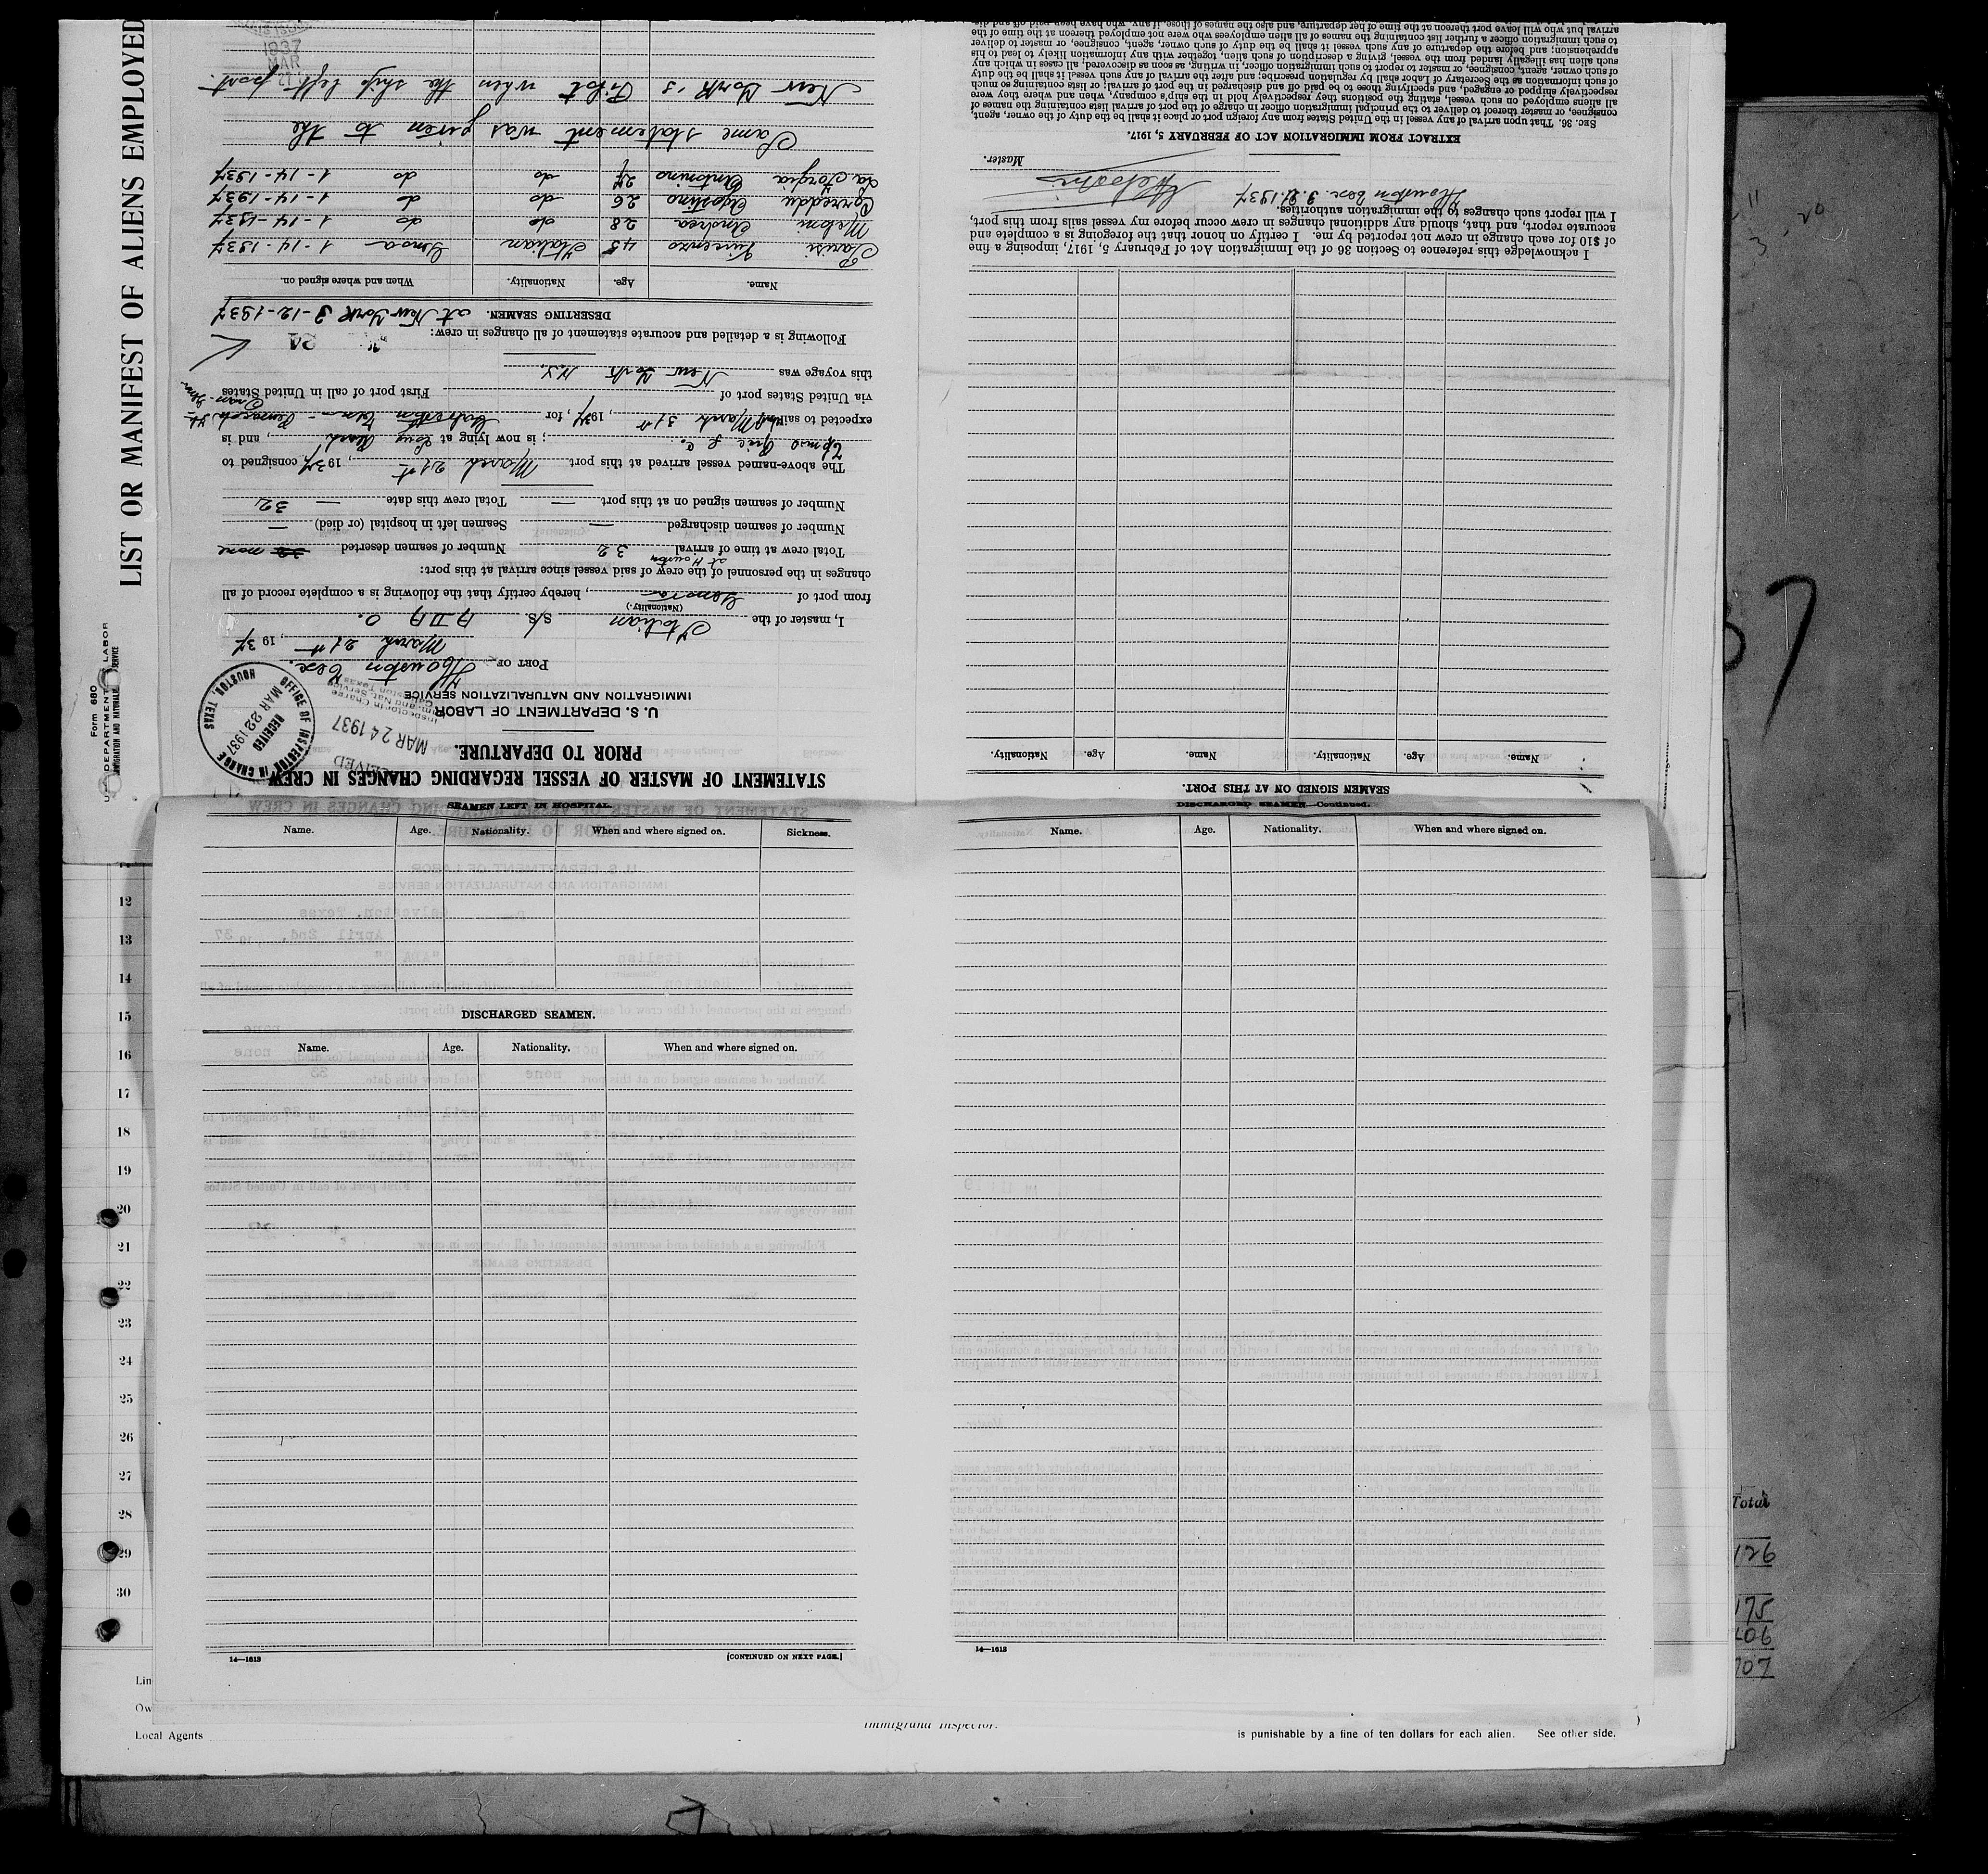 LIST OR MANIFEST OF ALIENS EMPLOYED
Form 680
DEPARTMENT LABOR
STATEMENT OF MASTER OF VESSEL REGARDING CHANGES IN CREW
PRIOR TO DEPARTURE.
U. S. DEPARTMENT OF LABOR
IMMIGRATION AND NATURALIZATION SERVICE
OFFICE OF INSPECTOR IN CHARGE
RECEIVED
MAR 22 1937
HOUSTON, TEXAS
RECEIVED
MAR 24 1937
Inspector in Charge
PORT OF Houston Tex.
March 21st, 1937
I, master of the Italian S/S ADA O.
(Nationality.)
from port of Genova, hereby certify that the following is a complete record of all
changes in the personnel of the crew of said vessel since arrival at this port:
at Houston
Total crew at time of arrival 32 Number of seamen deserted none
Number of seamen discharged — Seamen left in hospital (or died) —
Number of seamen signed on at this port — Total crew this date — 32
The above-named vessel arrived at this port March 21st, 1937, consigned to
; is now lying at Long Reach, and is
expected to sail March 31st, 1937, for Galveston Tex
via United States port of First port of call in United States
this voyage was New York N.Y.
Following is a detailed and accurate statement of all changes in crew:
DESERTING SEAMEN. at New York 3-12-1937
Name. Age. Nationality. When and where signed on.
Parisi Vincenzo 45 Italian Genoa 1-14-1937
Meloni Andrea 28 do do 1-14-1937
Agostino 26 do do 1-14-1937
La Forgia Antonino 27 do do 1-14-1937
Same statement was given to the
New York's Pilot when the ship left port.
1937
MAR
SEAMEN SIGNED ON AT THIS PORT.
Name. Age. Nationality. Name. Age. Nationality.
I acknowledge this reference to Section 36 of the Immigration Act of February 5, 1917, imposing a fine
of $10 for each change in crew not reported by me. I certify on honor that the foregoing is a complete and
accurate report, and that, should any additional changes in crew occur before my vessel sails from this port,
I will report such changes to the immigration authorities.
Houston Tex. 3.21.1937
Master.
EXTRACT FROM IMMIGRATION ACT OF FEBRUARY 5, 1917.
SEC. 36. That upon arrival of any vessel in the United States from any foreign port or place it shall be the duty of the owner, agent,
consignee, or master thereof to deliver to the principal immigration officer in charge of the port of arrival lists containing the names of
all aliens employed on such vessel, stating the positions they respectively hold in the ship's company, when and where they were
respectively shipped or engaged, and specifying those to be paid off and discharged in the port of arrival; or lists containing so much
of such information as the Secretary of Labor shall by regulation prescribe; and after the arrival of any such vessel it shall be the duty
of such owner, agent, consignee, or master to report to such immigration officer, in writing, as soon as discovered, all cases in which any
such alien has illegally landed from the vessel, giving a description of such alien, together with any information likely to lead to his
apprehension; and before the departure of any such vessel it shall be the duty of such owner, agent, consignee, or master to deliver
to such immigration officer a further list containing the names of all alien employees who were not employed thereon at the time of the
arrival but who will leave port thereon at the time of her departure, and also the names of those, if any, who have been paid off and
SEAMEN LEFT IN HOSPITAL.
Name. Age. Nationality. When and where signed on. Sickness.
DISCHARGED SEAMEN.
Name. Age. Nationality. When and where signed on.
14—1613 [CONTINUED ON NEXT PAGE.]
DISCHARGED SEAMEN—Continued.
Name. Age. Nationality. When and where signed on.
14—1613
12
13
14
15
16
17
18
19
20
21
22
23
24
25
26
27
28
29
30
Lin
Ow
Local Agents
Immigrant Inspector.
is punishable by a fine of ten dollars for each alien. See other side.
37
Total
126
175
406
707